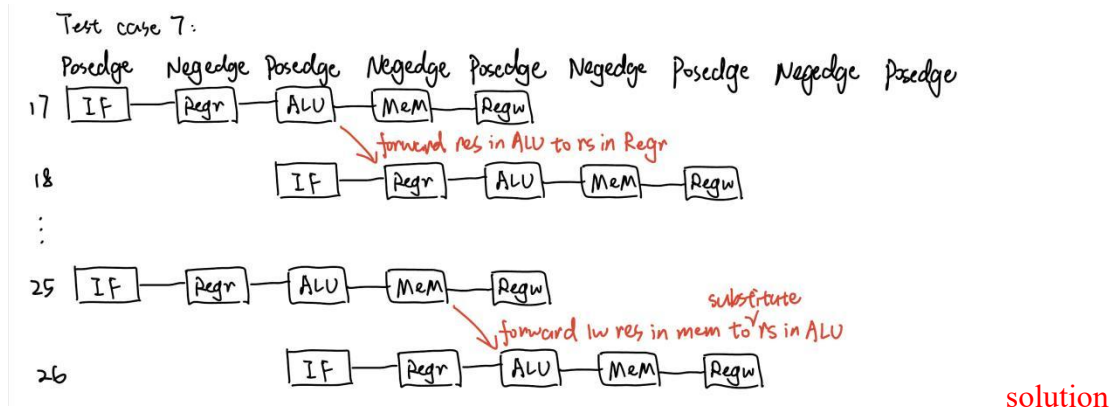 Test case 7:
Posedge Negedge Posedge Negedge Posedge Negedge Posedge Negedge Posedge
17 IF Regr ALU MeM Regw
forward res in ALU to rs in Regr
18 IF Regr ALU MeM Regw
⋮
25 IF Regr ALU MeM Regw
substitute
forward lw res in mem to rs in ALU
26 IF Regr ALU MeM Regw
solution